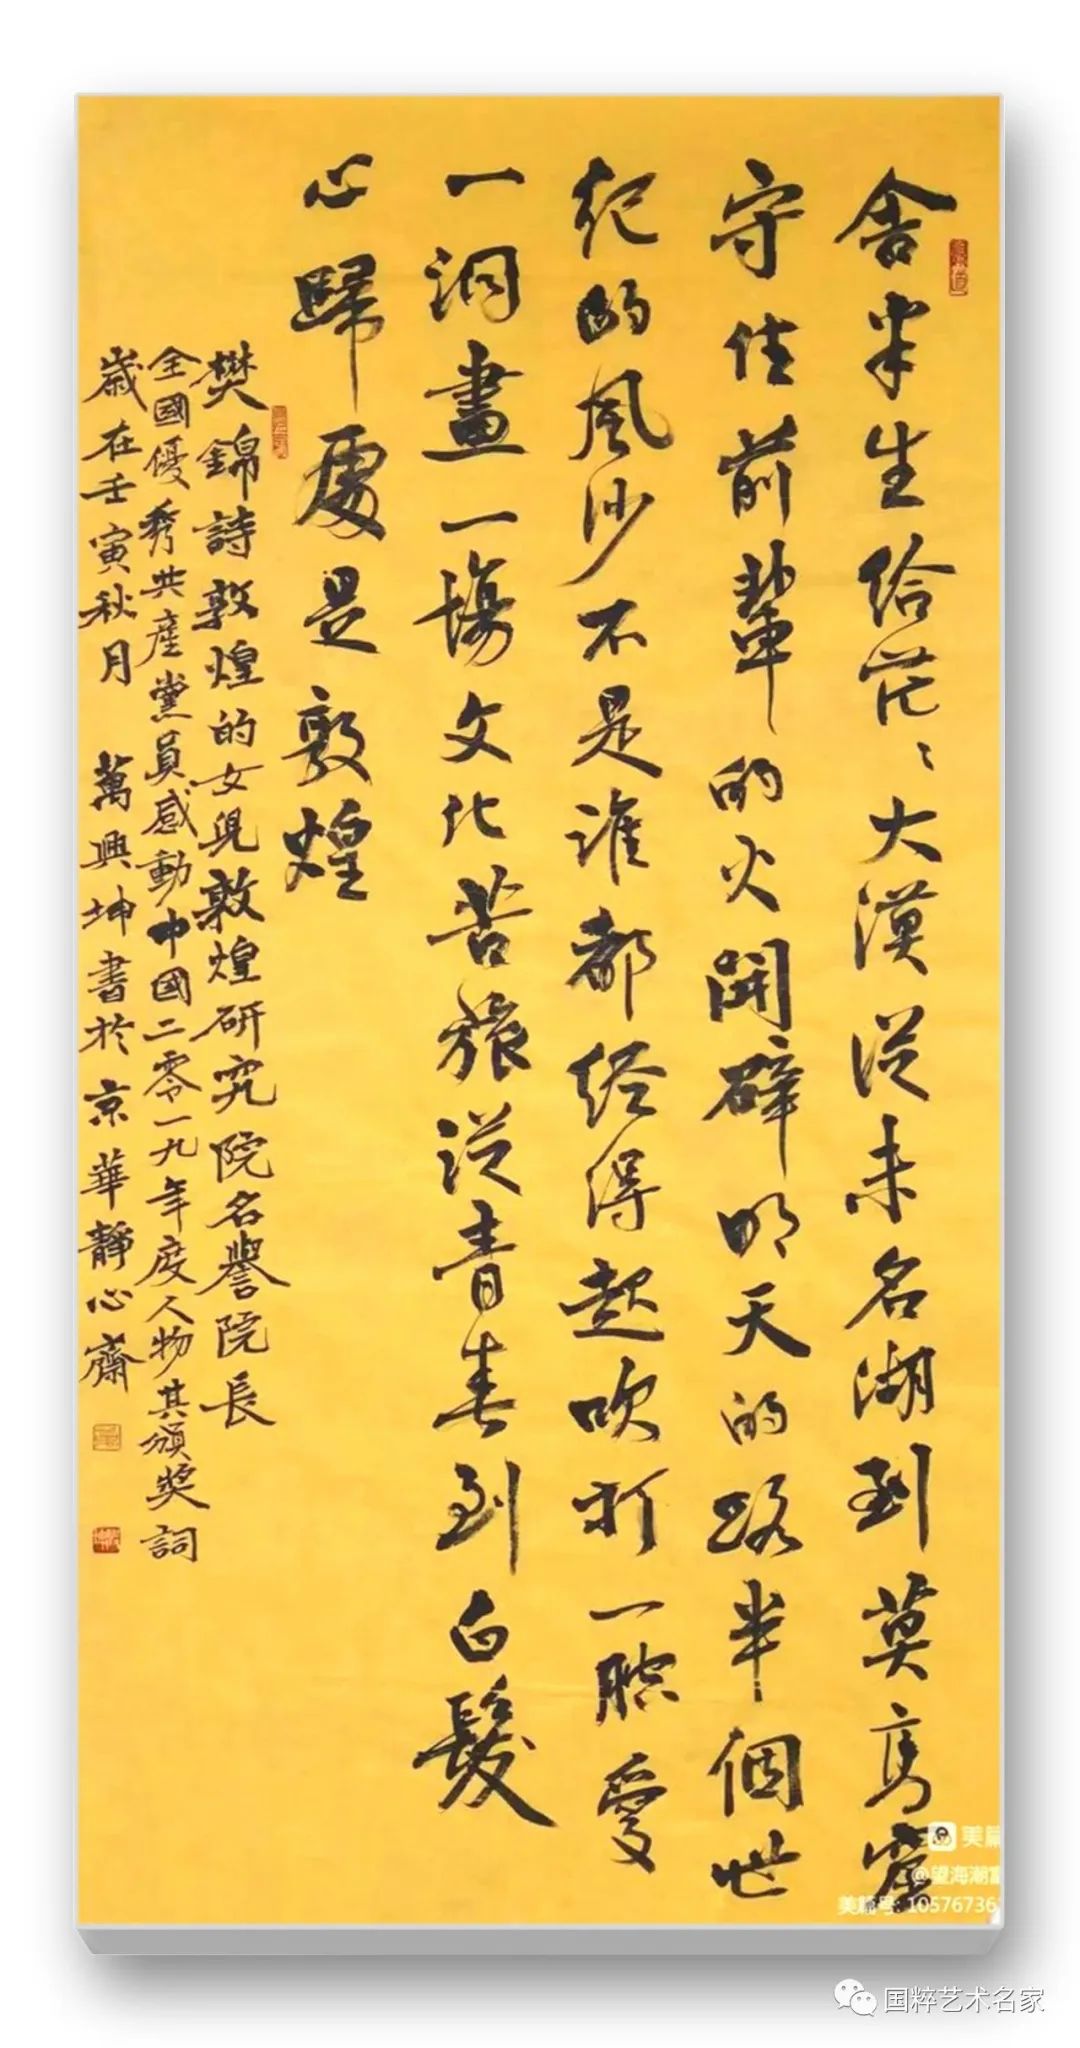 舍半生给茫〻大漠從未名湖到莫高窟
守住前輩的火開辟明天的路半個世
纪的風沙不是谁都经得起吹打一腔愛
一洞畫一場文化苦旅從青春到白髮
心歸處是敦煌
樊錦詩敦煌的女兒敦煌研究院名譽院長
全國優秀共產黨員感動中國二零一九年度人物其頒奖詞
歲在壬寅秋月 萬興坤書於京華靜心齋
美篇
@望海潮
美篇号: 10576736
国粹艺术名家